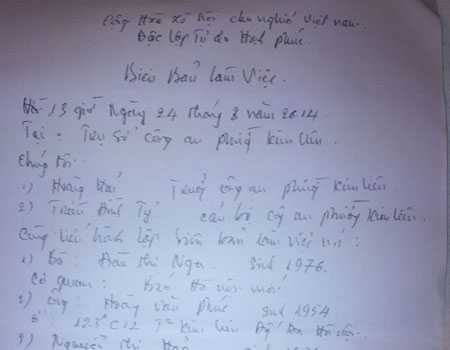 Cộng Hòa Xã Hội chủ nghĩa Việt nam.
Độc Lập Tự do Hạnh phúc.
Biên Bản làm Việc.
13 giờ Ngày 24 tháng 8 năm 2014
Tại: Trụ sở công an phường Kim liên.
Chúng tôi:
1) Hoàng Hải Trưởng công an phường Kim liên
2) Trần Đình Tý cán bộ công an phường Kim liên.
Cùng tiến hành lập biên bản làm việc với:
1) Bà: Đàn thị Nga. Sinh 1976.
Cơ quan: Báo Hà nội mới
2) ông: Hoàng văn phúc sinh 1954
ở 123 C12 Kim liên
3) Nguyễn thị